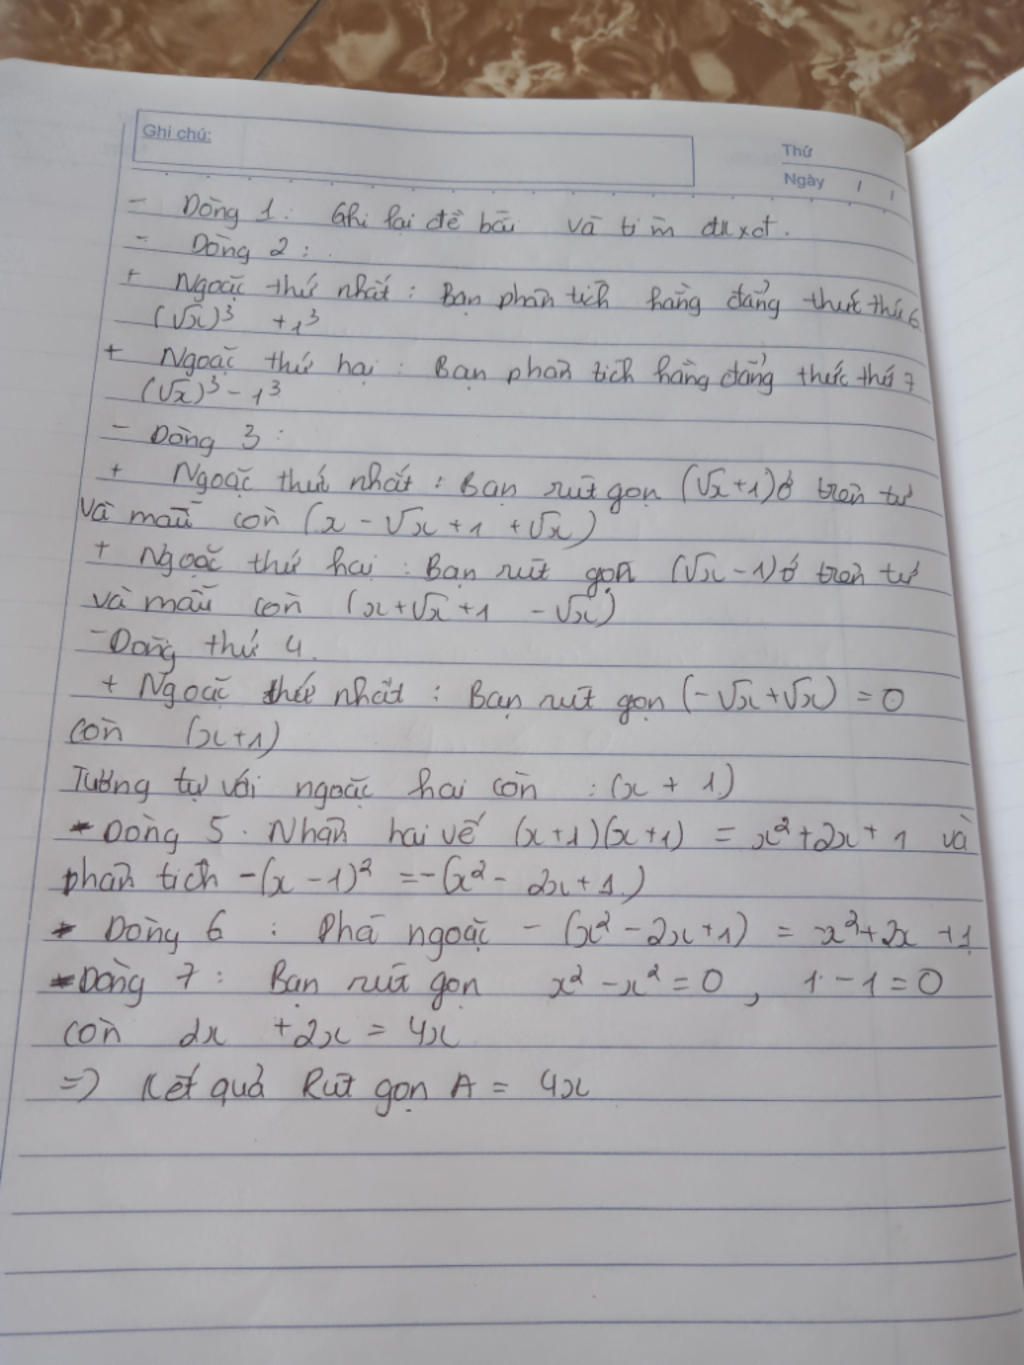 Ghi chú:
Thứ
Ngày / /
- Dòng 1: Ghi lại đề bài và tìm đkxđ.
- Dòng 2:
+ Ngoặc thứ nhất: Bạn phân tích hằng đẳng thức thứ 6
(√x)³ + 1³
+ Ngoặc thứ hai: Bạn phân tích hằng đẳng thức thứ 7
(√x)³ - 1³
- Dòng 3:
+ Ngoặc thứ nhất: Bạn rút gọn (√x+1) ở trên tử
và mẫu còn (x - √x + 1 + √x)
+ Ngoặc thứ hai: Bạn rút gọn (√x - 1) ở trên tử
và mẫu còn (x + √x + 1 - √x)
- Dòng thứ 4.
+ Ngoặc thứ nhất: Bạn rút gọn (-√x + √x) = 0
còn (x+1)
Tương tự với ngoặc hai còn : (x + 1)
* Dòng 5. Nhân hai vế (x+1)(x+1) = x² + 2x + 1 và
phân tích -(x - 1)² = -(x² - 2x + 1)
* Dòng 6 : Phá ngoặc - (x² - 2x + 1) = x² + 2x + 1
* Dòng 7 : Bạn rút gọn x² - x² = 0, 1 - 1 = 0
còn 2x + 2x = 4x
=> Kết quả Rút gọn A = 4x